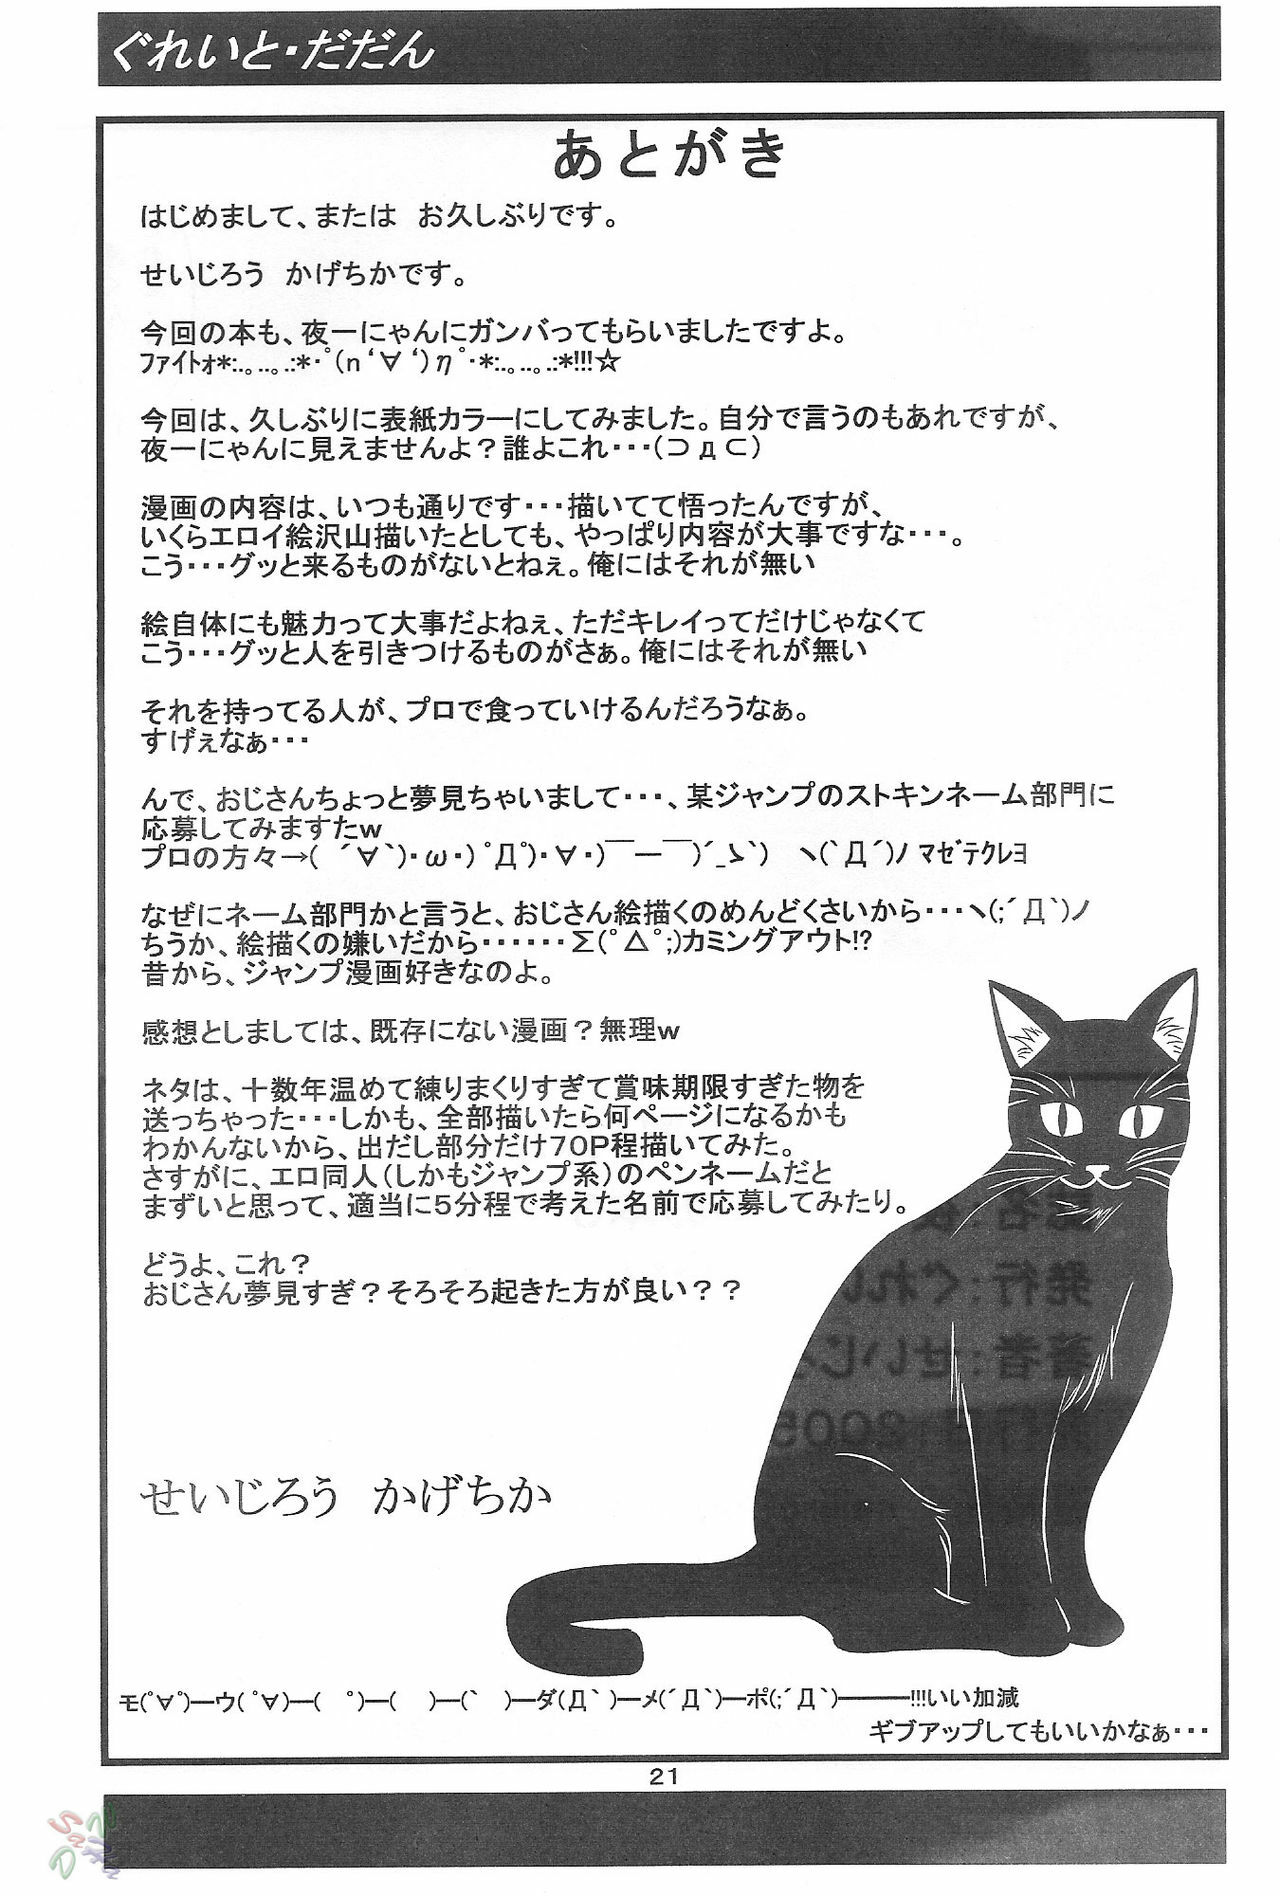 ぐれいと・だだん
あとがき
はじめまして、または　お久しぶりです。
せいじろう　かげちかです。
今回の本も、夜一にゃんにガンバってもらいましたですよ。
ﾌｧｲﾄｫ*:..｡..｡.:*･ﾟ(n‘∀‘)ηﾟ･*:..｡..｡.:*!!!☆
今回は、久しぶりに表紙カラーにしてみました。自分で言うのもあれですが、
夜一にゃんに見えませんよ？誰よこれ・・・(⊃д⊂)
漫画の内容は、いつも通りです・・・描いてて悟ったんですが、
いくらエロイ絵沢山描いたとしても、やっぱり内容が大事ですな・・・。
こう・・・グッと来るものがないとねぇ。俺にはそれが無い
絵自体にも魅力って大事だよねぇ、ただキレイってだけじゃなくて
こう・・・グッと人を引きつけるものがさぁ。俺にはそれが無い
それを持ってる人が、プロで食っていけるんだろうなぁ。
すげぇなぁ・・・
んで、おじさんちょっと夢見ちゃいまして・・・、某ジャンプのストキンネーム部門に
応募してみますたｗ
プロの方々→( ´∀`)･ω･) ﾟДﾟ)･∀･)￣ー￣)´_ゝ`)　ヽ(`Д´)ﾉ ﾏｾﾞﾃｸﾚﾖ
なぜにネーム部門かと言うと、おじさん絵描くのめんどくさいから・・・ヽ(;´Д`)ノ
ちうか、絵描くの嫌いだから・・・・・・Σ(ﾟ△ﾟ;)カミングアウト!?
昔から、ジャンプ漫画好きなのよ。
感想としましては、既存にない漫画？無理ｗ
ネタは、十数年温めて練りまくりすぎて賞味期限すぎた物を
送っちゃった・・・しかも、全部描いたら何ページになるかも
わかんないから、出だし部分だけ70P程描いてみた。
さすがに、エロ同人(しかもジャンプ系)のペンネームだと
まずいと思って、適当に5分程で考えた名前で応募してみたり。
どうよ、これ？
おじさん夢見すぎ？そろそろ起きた方が良い？？
せいじろう　かげちか
モ(ﾟ∀ﾟ)━ウ(ﾟ∀)━(　ﾟ)━(　)━(`　)━ダ(Д`)━メ(´Д`)━ポ(;´Д`)━━━!!!いい加減
ギブアップしてもいいかなぁ・・・
21